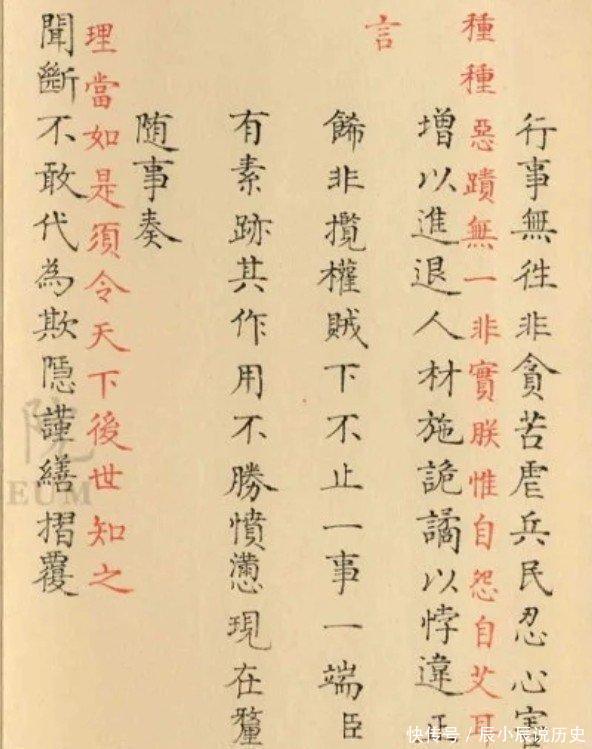 行事無徃非貪苦虐兵民忍心害
種種惡蹟無一非實朕惟自怨自艾耳
增以進退人材施詭譎以悖違正
言
餙非攬權賊下不止一事一端臣
有素跡其作用不勝憤懣現在釐
随事奏
理當如是須令天下後世知之
聞斷不敢代為欺隱謹繕摺覆
院
EUM
快传号／辰小辰说历史